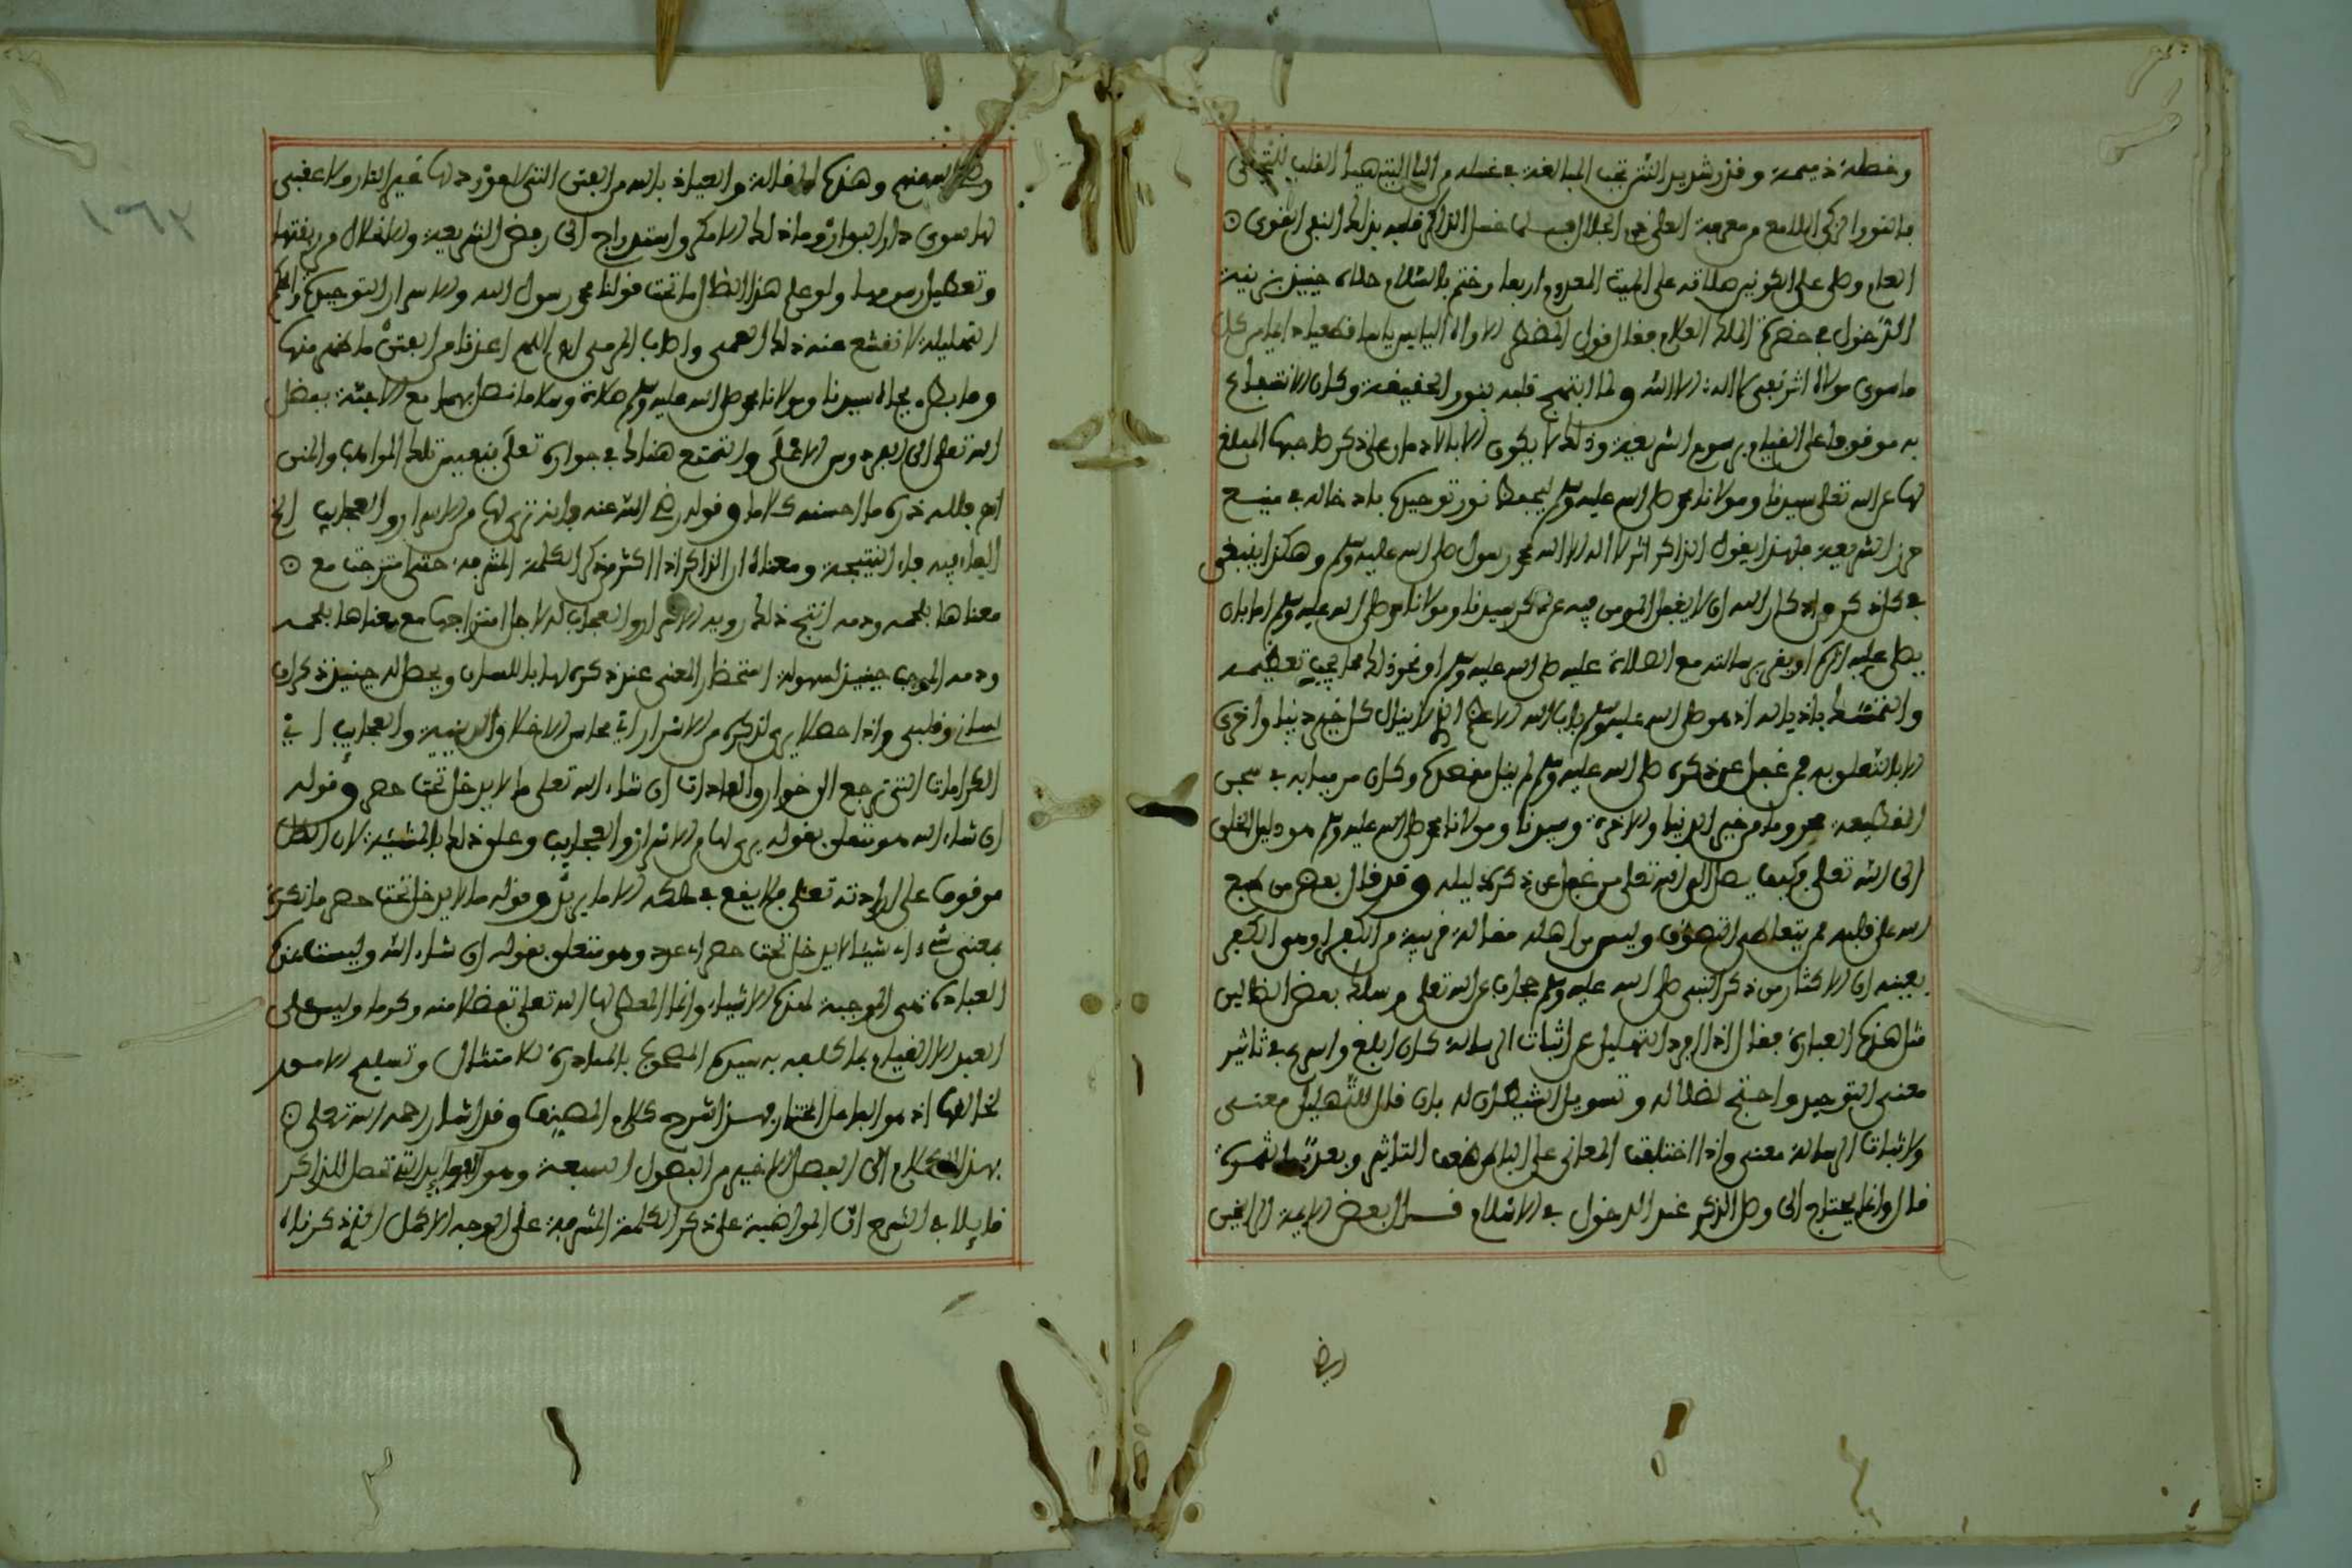 وخصلة ذميمة وقذر شديد النتن تجب المبالغة في غسله من الباب الذي القلب للتجلي
بالنور الزكي اللامع من معرفة العلي ذي الجلال فلما غسل الذاكر قلبه بذلك النفي القوي
العام وصلى على الكونين صلاته على الميت المعدوم أربعا وختم بالسلام حلاه حينئذ بزينة
الدخول في حضرة الملك العلام فقال قول المضطر الأواه اليائس يأسا قطعيا دائما من كل
ما سوى مولاه اثر نفي لا إله إلا الله ولما ابتهج قلبه بنور الحقيقة وكان الانتفاع
به موقوفا على القيام برسوم الشريعة وذلك لا يكون إلا بالإدمان على ذكر صاحبها المبلغ
لها عن الله تعلى سيدنا ومولانا محمد صلى الله عليه وسلم ليحفظ نور توحيده بإدخاله في منيع
حرز الشريعة فلهذا يقول الذاكر اثر لا إله إلا الله محمد رسول صلى الله عليه وسلم وهكذا ينبغي
في كل ذكر من أذكار الله أن لا يغفل المومن فيه عن ذكر سيدنا ومولانا محمد صلى الله عليه وسلم إما بأن
يصلي عليه اثره أو يقر برسالته مع الصلاة عليه صلى الله عليه وسلم أو نحو ذلك مما يجب تعظيمه
والتمسك بأذياله إذ هو صلى الله عليه وسلم باب الله الأعظم الذي لا ينال كل خير دنيا وأخرى
إلا بالتعلق به فمن غفل عن ذكره صلى الله عليه وسلم لم ينل مقصده وكان مرميا به في سجن
القطيعة محروما من خير الدنيا والآخرة وسيدنا ومولانا محمد صلى الله عليه وسلم هو دليل الخلق
إلى الله تعلى فكيف يصل إلى الله تعلى من غفل عن ذكر دليله وقد قال بعض من طبع
الله على قلبه ممن يتعاطى التصوف وليس من أهله مقالة قريبة من الكفر أو هو الكفر
بعينه أن الإكثار من ذكر النبي صلى الله عليه وسلم حجاب عن الله تعلى وسلك بعض الضالين
مثل هذه العبارة فقال إذا أفرد التهليل عن إثبات الرسالة كان أبلغ وأسرع في تأثير
معنى التوحيد واحتج لضلاله وتسويل الشيطان له بأن قال للتهليل معنى
ولإثبات الرسالة معنى وإذا اختلفت المعاني على الباطن ضعف التأثير وبعدت الثمرة
قال وإنما يحتاج إلى وصل الذكر عند الدخول في الإسلام قال بعض الأيمة الراسخين
رضي
رضي الله عنهم وهذه المقالة والعياذ بالله من الفتن التي لا مورد لها غير النار ولا عقبى
لها سوى دار البوار وما ذلك إلا مكر واستدراج إلى رفض الشريعة والانحلال من ربقتها
وتعطيل رسومها ولو علم هذا الضال ما تحت قولنا محمد رسول الله من الأسرار التوحيدية والحكم
التهليلية لانقشع عنه ذلك العمى وأصاب المرمى اللهم أعذنا من الفتن ما ظهر منها
وما بطن بجاه سيدنا ومولانا محمد صلى الله عليه وسلم صلاة وسلاما نصل بهما مع الأحبة بفضل
الله تعلى إلى الفردوس الأعلى والتمتع هنالك في جواره تعلى بنفيس تلك المواهب والمنن
انتهى فلله دره ما أحسنه كلاما وقوله رضي الله عنه فإنه يرى لها من الأسرار والعجايب الخ
الفاء فيه فاء النتيجة ومعناه أن الذاكر إذا أكثر من ذكر الكلمة المشرفة حتى امتزجت مع
معناها بلحمه ودمه انتج ذلك رؤية الأسرار والعجايب له لأجل امتزاجها مع معناها بلحمه
ودمه الموجب حينئذ لسهولة استحضار المعنى عند ذكره لها باللسان ويحصل له حينئذ ذكران
لساني وقلبي وإذا حصلا يرى لذكره من الأسرار أي محاسن الأخلاق الدينية والعجايب أي
الكرامات التي ترجع إلى خوارق العادات إن شاء الله تعلى ما لا يدخل تحت حصر وقوله
إن شاء الله هو متعلق بقوله يرى لها من الأسرار والعجايب وعلق ذلك بالمشيئة لأن الكل
موقوف على إرادته تعلى فلا يقع في ملكه إلا ما يريد وقوله ما لا يدخل تحت حصر ما نكرة
بمعنى شيء أي شيئا لا يدخل تحت حصر أي عد وهو متعلق بقوله إن شاء الله وليست هذه
العبادة هي الموجبة لهذه الأشياء وإنما المعطي لها الله تعلى تفضلا منه وكرما وليس على
العبد إلا القيام بما كلفه به سيده المصحوب بالمبادرة للامتثال وتسليم الأمور
لخالقها إذ هو الفاعل المختار فهذا شرح كلام المصنف وقد أشار رحمه الله تعلى
بهذا الكلام إلى الفصل الأخير من الفصول السبعة وهو الفوايد التي تحصل للذاكر
قايلا في الشرح أن المواظبة على ذكر الكلمة المشرفة على الوجه الأكمل الذي ذكرناه